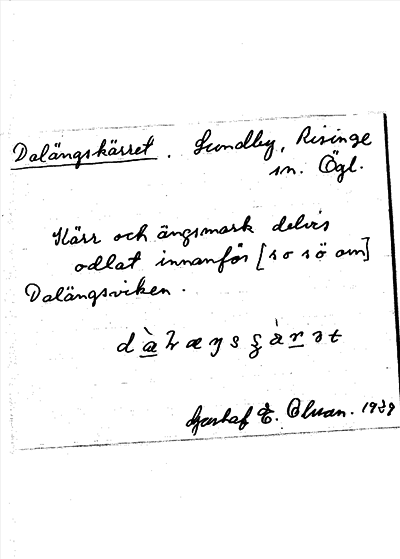 Dalängskärret. Lundby, Risinge
sn. Ögl.
Kärr och ängsmark delvis
odlat innanför [so sö om]
Dalängsviken.
Gustaf E. Olsson. 1939